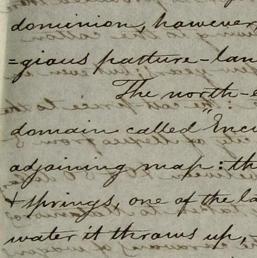 dominion, however,
=gious pasture-lan
The north-e
domain called "Encu
adjoining map: th
& springs, one of the la
water it throws up,